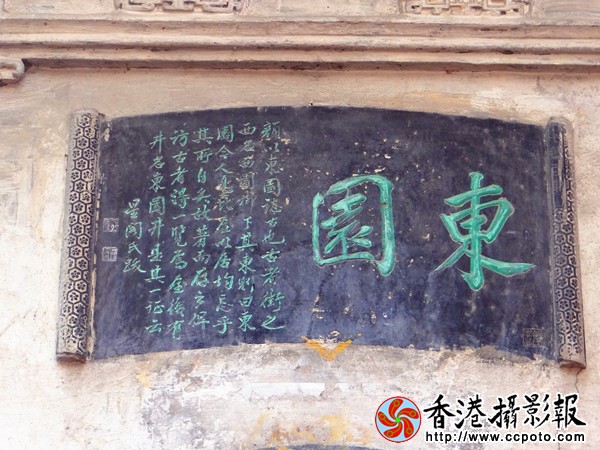 東園
顏以東園誌古也古者街之
西名西園街下其東則曰東
園今人均忘乎
其所自矣故著而存之俾
訪古者得一覽焉屋後有
井名東園井是其一證云
星閣氏跋
香港攝影報
http://www.ccpoto.com/